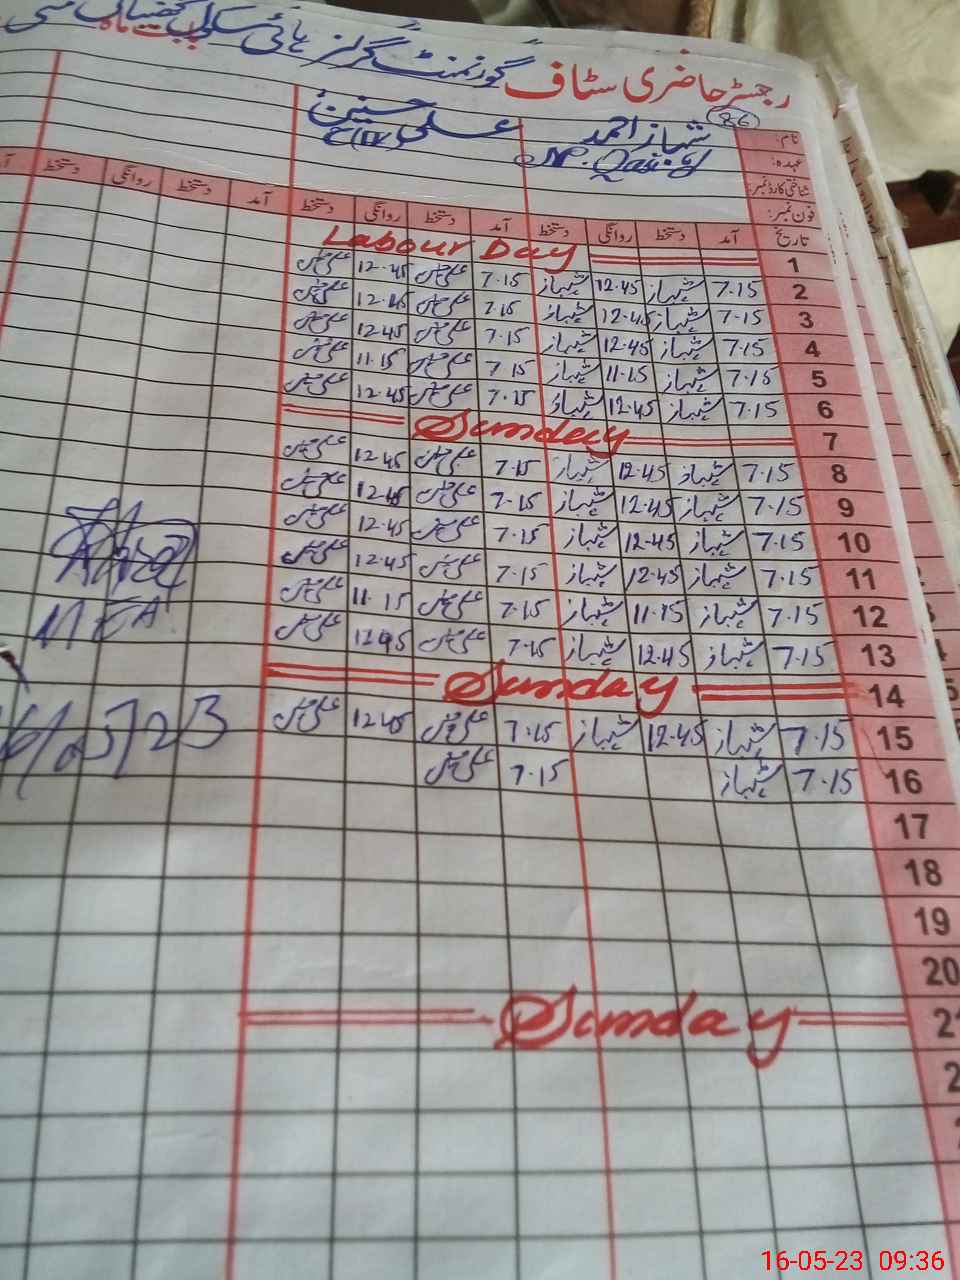 رجسٹر حاضری سٹاف گورنمنٹ گرلز ہائی سکول
بابت ماہ مئی
86
نام: شہباز احمد علی حسنین
عہدہ: N. Qasid C/IV
شناختی کارڈ نمبر:
فون نمبر:
تاریخ آمد دستخط روانگی دستخط آمد دستخط روانگی دستخط آمد دستخط روانگی دستخط
1 Labour Day
2 7.15 شہباز 12.45 شہباز 7.15 علی حسنین 12.45 علی حسنین
3 7.15 شہباز 12.45 شہباز 7.15 علی حسنین 12.45 علی حسنین
4 7.15 شہباز 12.45 شہباز 7.15 علی حسنین 12.45 علی حسنین
5 7.15 شہباز 11.15 شہباز 7.15 علی حسنین 11.15 علی حسنین
6 7.15 شہباز 12.45 شہباز 7.15 علی حسنین 12.45 علی حسنین
7 Sunday
8 7.15 شہباز 12.45 شہباز 7.15 علی حسنین 12.45 علی حسنین
9 7.15 شہباز 12.45 شہباز 7.15 علی حسنین 12.45 علی حسنین
10 7.15 شہباز 12.45 شہباز 7.15 علی حسنین 12.45 علی حسنین
11 7.15 شہباز 12.45 شہباز 7.15 علی حسنین 12.45 علی حسنین
12 7.15 شہباز 11.15 شہباز 7.15 علی حسنین 11.15 علی حسنین
13 7.15 شہباز 12.45 شہباز 7.15 علی حسنین 12.45 علی حسنین
14 Sunday
15 7.15 شہباز 12.45 شہباز 7.15 علی حسنین 12.45 علی حسنین
16 7.15 شہباز 7.15 علی حسنین
17
18
19
20
21 Sunday
MEA
16/05/23
16-05-23 09:36